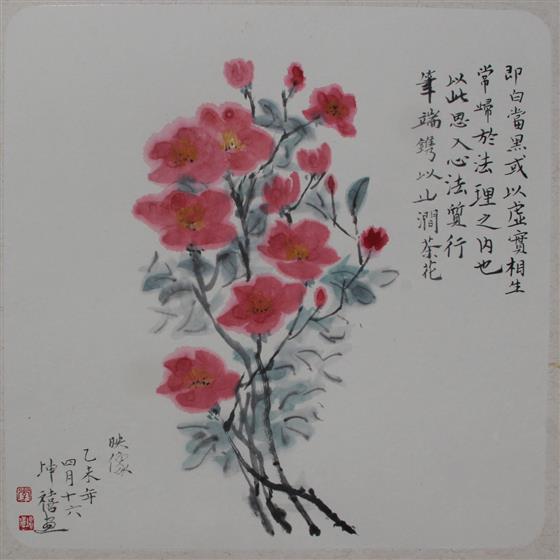 即白當黑或以虛實相生
常歸於法理之內也
以此思入心法質行
筆端鐫以山澗茶花
映像
乙未年
四月十六
坤禧画